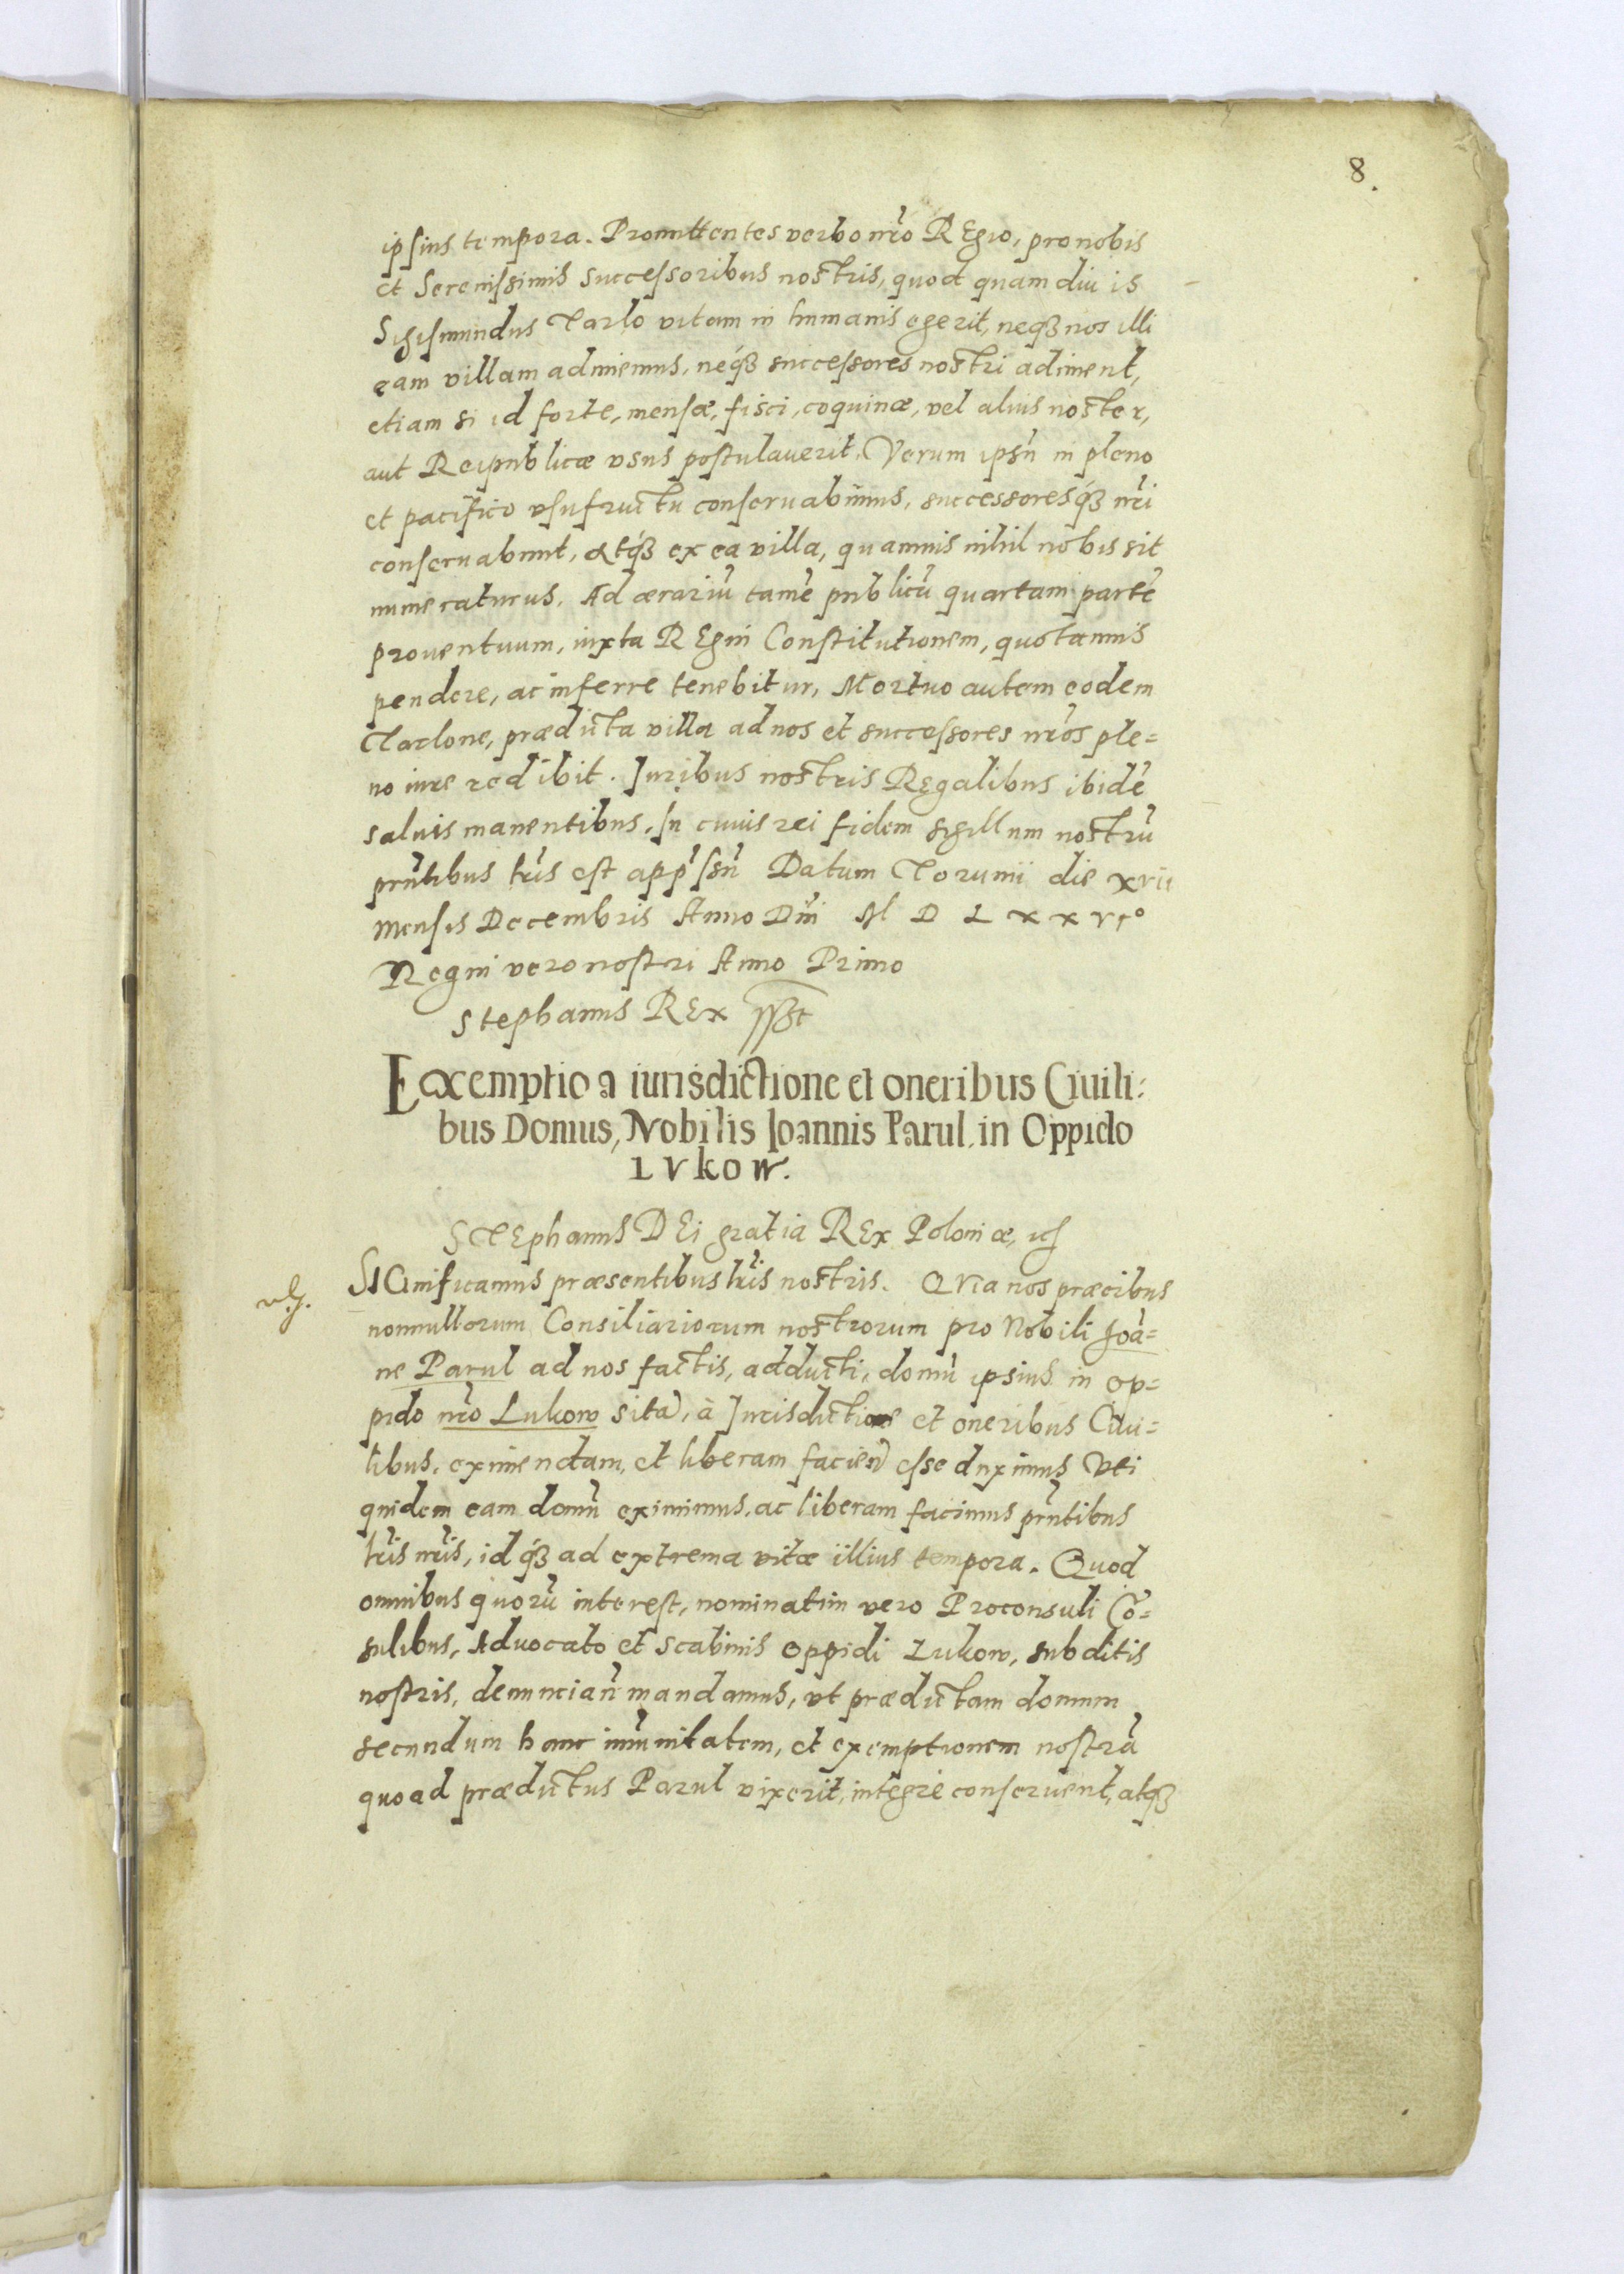 8.
ipsius tempora. Promittentes verbo nr̃o REgio, pro nobis
et Serenissimis Successoribus nostris, quod quam diu is
Sigismundus Tarlo vitam in humanis egerit, neqꝫ nos illi
eam villam adimemus, neqꝫ successores nostri adiment,
etiam si id forte, mensæ, fisci, coquinæ, vel alius noster,
aut Reipublicæ vsus postulauerit. Verum ipsũ in pleno
et pacifico vsufructu conseruabimus, successoresqꝫ nr̃i
conseruabunt, atqꝫ ex ea villa, quamuis nihil nobis sit
numeraturus. Ad ærariũ tamẽ publicũ quartam partẽ
prouentuum, iuxta REgni Constitutionem, quotannis
pendere, ac inferre tenebitur, Mortuo autem eodem
Tarlone, prædicta villa ad nos et successores nr̃os ple=
no iure redibit. Iuribus nostris Regalibus ibidẽ
saluis manentibus. In cuius rei fidem sigillum nostrũ
prñtibus lr̃is est appr̃ssũ Datum Torunii die xvii
Mensis Decembris Anno Dñi M D L x x vi°
Regni vero nostri Anno Primo
Stephanus REx sst
Exemptio a iurisdictione et oneribus Ciuili=
bus Domus, Nobilis Ioannis Parul, in Oppido
LVkow.
STEphanus DEi gratia REx Poloniæ, &c
SIGnificamus præsentibus lr̃is nostris. QVia nos præcibus
nonnullorum Consiliariorum nostrorum pro Nobili Joã=
ne Parul ad nos factis, adducti, domũ ipsius in op=
pido nr̃o Lukow sitã, à Jurisdictione et oneribus Ciui=
libus, eximendam, et liberam facien̄ esse duximus Vti
quidem eam domũ eximimus, ac liberam facimus prñtibus
lr̃is nr̃is, idqꝫ ad extrema vitæ illius tempora. Quod
omnibus quorũ interest, nominatim vero Proconsuli Cõ=
sulibus, Aduocato et Scabinis oppidi Lukow, subditis
nostris, denuncian̄ mandamus, vt prædictam domum
secundum hanc im̃unitatem, et exemptionem nostrã
quoad prædictus Parul vixerit, integrè conseruent, atqꝫ